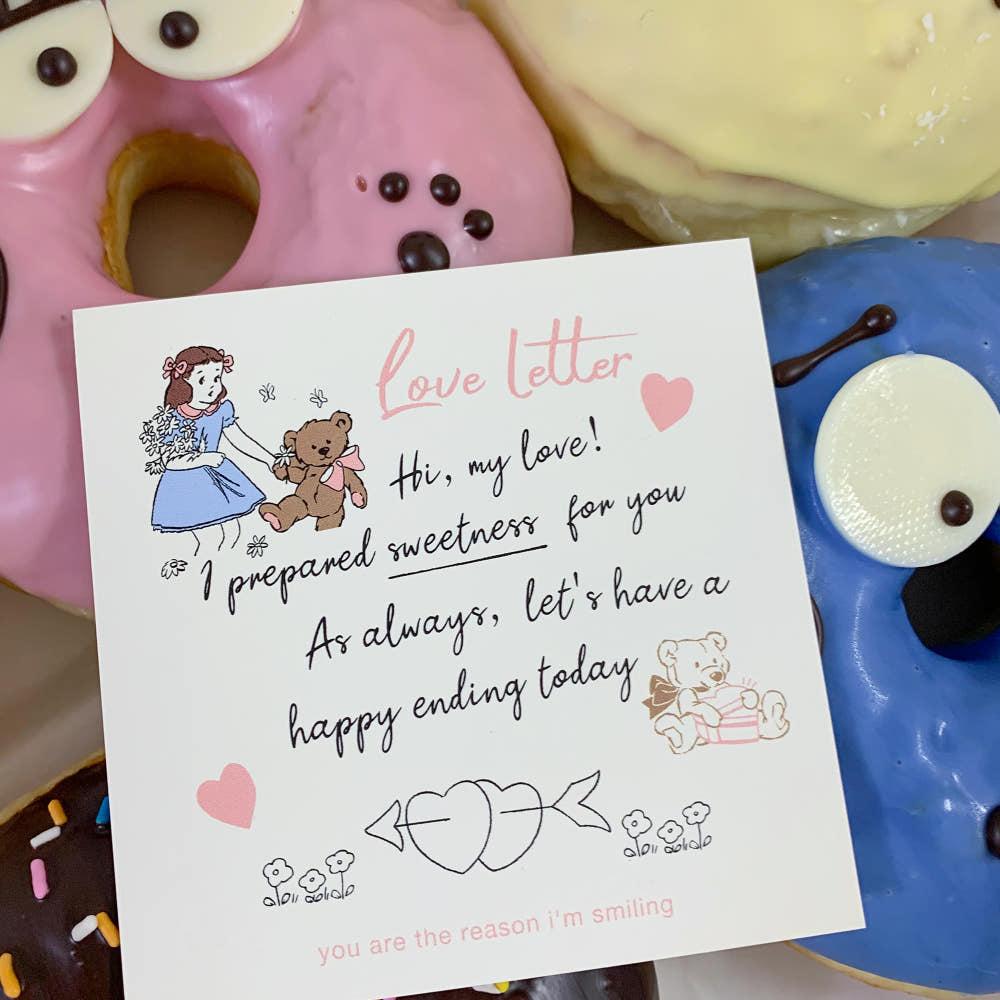 Love letter
Hi, my love!
I prepared sweetness for you
As always, let's have a
happy ending today
you are the reason i'm smiling